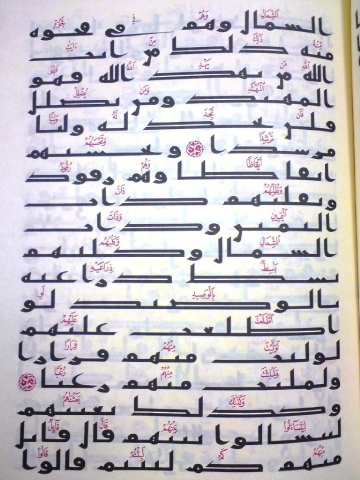 الشمال وهم في فجوه
منه ذلك من ايت
الله من يهد الله فهو
المهتد ومن يضلل
فلن تجد له وليا
مرشدا وتحسبهم
ايقاظا وهم رقود
ونقلبهم ذات
اليمين وذات
الشمال وكلبهم
بسط ذراعيه
بالوصيد لو
اطلعت عليهم
لوليت منهم فرارا
ولملئت منهم رعبا
وكذلك بعثنهم
ليتسالوا بينهم قال قايل
منهم كم لبثتم قالوا